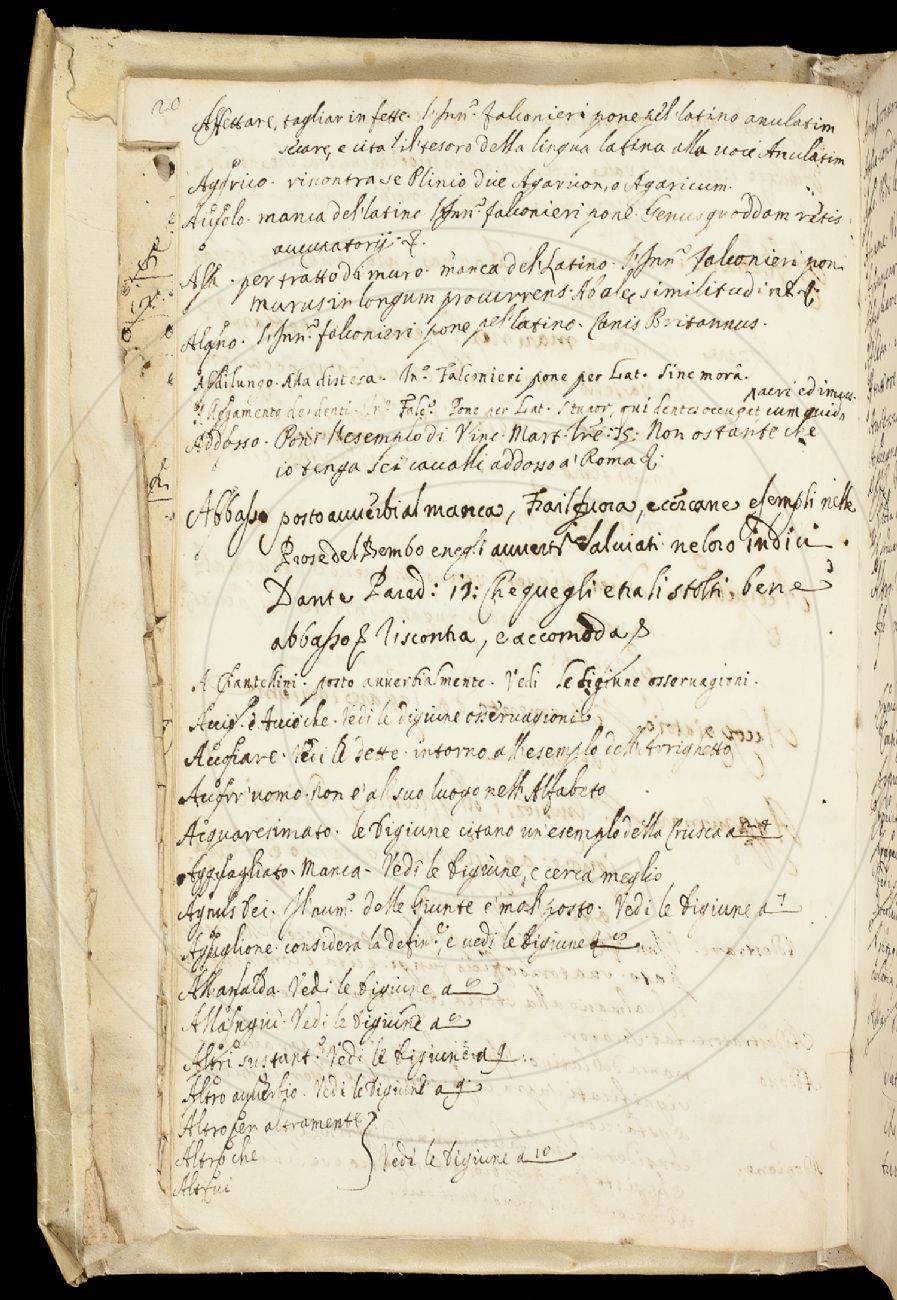 20
Affettare, tagliar in fette. l'Inn.º falconieri pone pel latino anulatim
secare, e cita l'il tesoro della lingua latina alla voce Anulatim
Agarico. riscontra se Plinio dice Agaricon, o Agaricum.
Aiuolo. manca del latino l'Inn.º falconieri pone. Genus quoddam rētis
aucupatorij. &.
Ala. per tratto di muro. manca del Latino. l'Inn.º falconieri pon.
murus in longum procurrens. Ab alae similitudine &.
Alano. l'Inn.º falconieri. pone pel latino. Canis Britannus.
Abdilungo. Alla distesa. In.º Falconieri pone per Lat. Sine morâ.
Allegamento de denti. In.º Falc.º Pone per Lat. Stupor, qui dentes occupat cum quid
acri edimus.
Addosso. Porre l'esemplo di Vinc. Mart. lre. 15. Non ostante che
io tenga sei cavalli addosso a' Roma &.
Abbasso posto avverbial manca, Trassil fuora, e cercane esempli nelle
Prose del Bembo e negli avvert. Salviati ne loro indici.
Dante Parad: 13: Che quegli e tra li stolti bene
abbasso & riscontra, e accomoda
A Ciantellini. posto avverbialmente. Vedi le digiune osservazioni.
Acciò. d'Acciò che. Vedi le digiune osservazioni
Accogliare. Vedi le dette. intorno all'esemplo dell'Arrighetto
non è al suo luogo nell'Alfabeto
Acquaresimato. le Digiune citano un'esemplo della Crusca a 24
Agguagliato. Manca. Vedi le Digiune, e cerca meglio
Agnus Dei. Il num.º delle Giunte e mal posto. Vedi le Digiune a 7
Aguglione. considera la defin.e, e vedi le Digiune a
Alla Vedi le Digiune a
Alla Vedi le Digiune a
Altri sustant.º Vedi le Digiune a 9.
Altro avverbio. Vedi le Digiune a 9.
Altro per altramente
Altro che
Vedi le Digiune a 10
Altrui